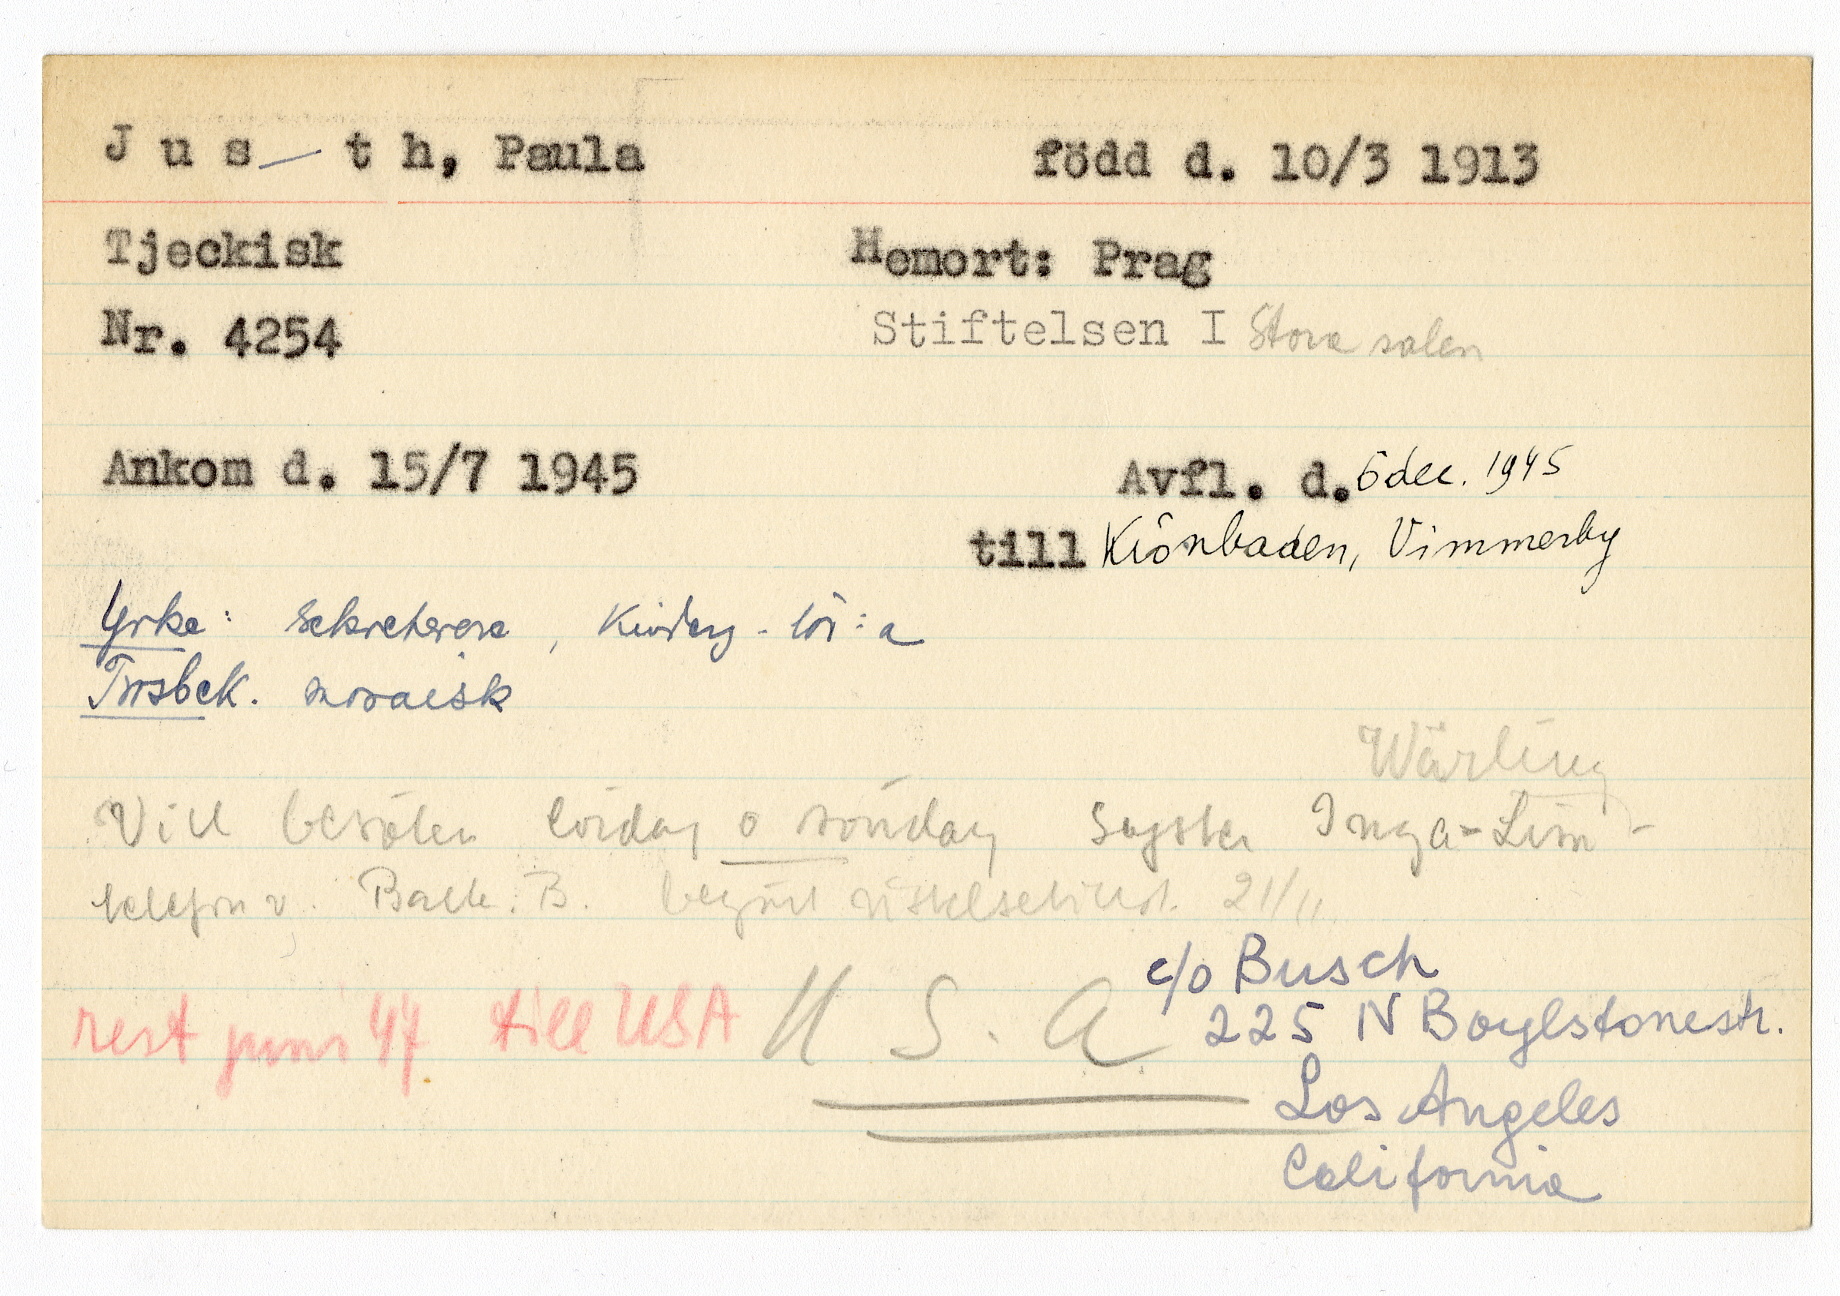 J u s — t h, Paula född d. 10/3 1913
Tjeckisk Hemort: Prag
Nr. 4254 Stiftelsen I Stora salen
Ankom d. 15/7 1945 Avfl. d. 6 dec. 1945
till Krönbaden, Vimmerby
Yrke: Sekreterare, Kinderg. - lör:a
Trosbek. mosaisk
Wärling
Vill besöka lördag o söndag Syster Inga-Lisa
telefon v. 21/11
c/o Busch
rest juni 47 till USA U S. A 225 N Boylstonestr.
Los Angeles
California